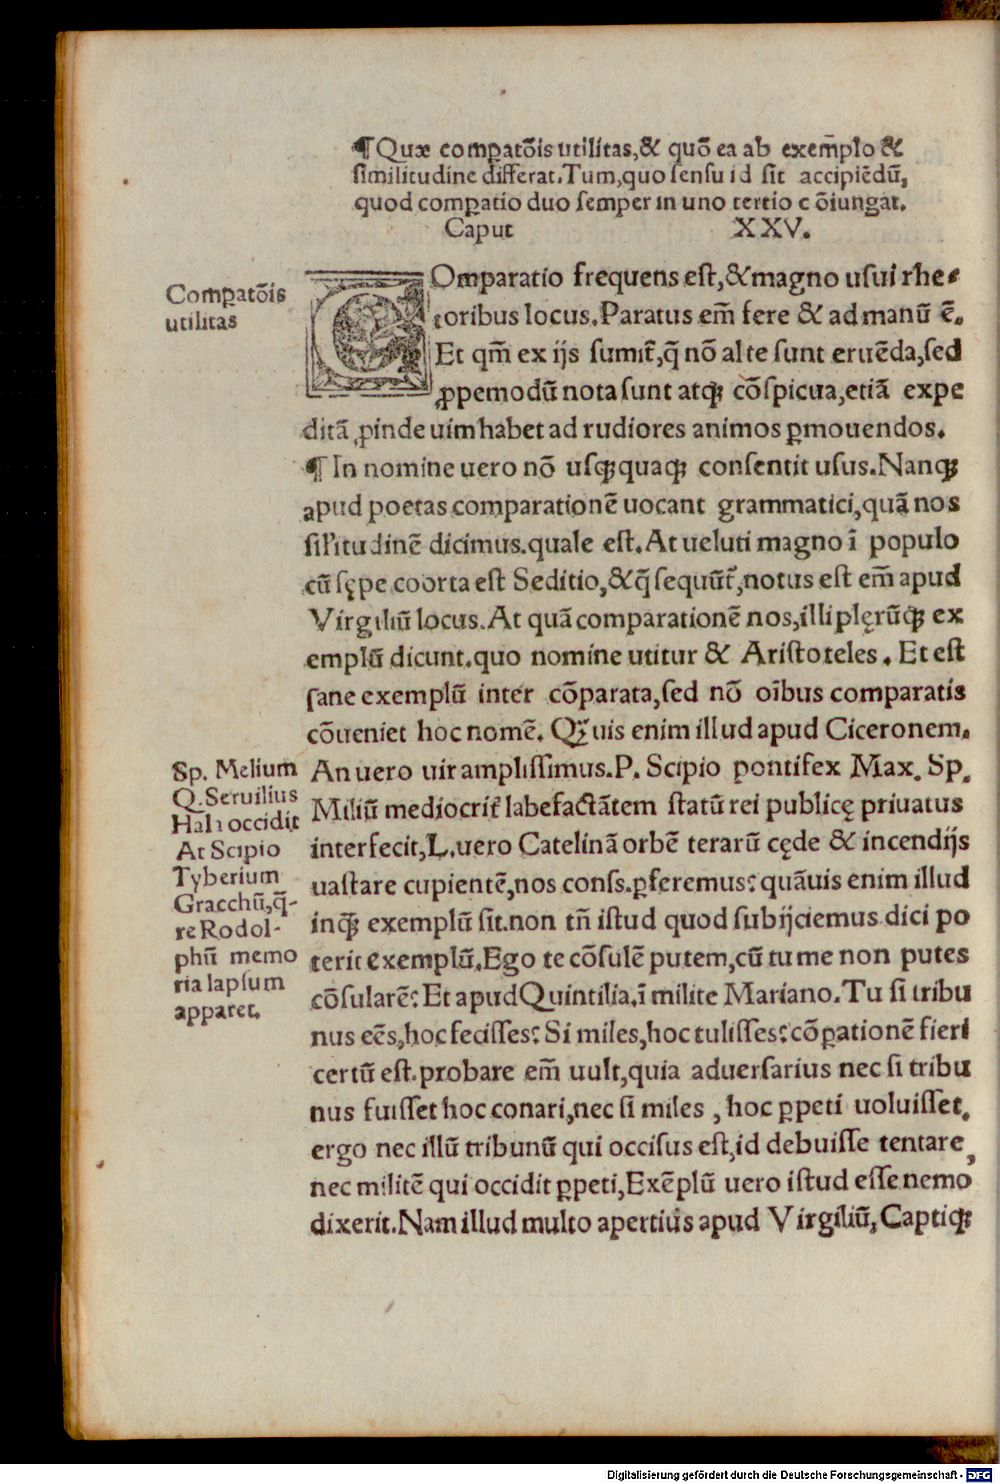 ¶ Quæ comꝑatõis utilitas,& quõ ea ab exem̃plo &
ſimilitudine differat.Tum,quo ſenſu id ſit accipiẽdũ,
quod comꝑatio duo ſemper in uno tertio cõiungat.
Caput XXV.
Comꝑatõis
utilitas
COmparatio frequens eſt,& magno uſui rhe-
toribus locus.Paratus em̃ fere & ad manũ ẽ.
Et qm̃ ex ijs ſumit̃,q̃ nõ alte ſunt eruẽda,ſed
ꝓpemodũ nota ſunt atqꝫ cõſpicua,etiã expe
ditã ꝓinde uim habet ad rudiores animos ꝑmouendos.
¶ In nomine uero nõ uſqꝫquaqꝫ conſentit uſus.Nanqꝫ
apud poetas comparationẽ uocant grammatici,quã nos
ſil'itudinẽ dicimus.quale eſt.At ueluti magno ĩ populo
cũ ſępe coorta eſt Seditio,& q̃ ſequũt̃,notus eſt em̃ apud
Virgiliũ locus.At quã comparationẽ nos,illi plęrũqꝫ ex
emplũ dicunt.quo nomine utitur & Ariſtoteles. Et eſt
ſane exemplũ inter cõparata,ſed nõ oĩbus comparatis
cõueniet hoc nomẽ. Qꝫuis enim illud apud Ciceronem.
An uero uir ampliſſimus.P. Scipio pontifex Max. Sp.
Miliũ mediocrit̃ labefactãtem ſtatũ rei publicę priuatus
interfecit,L.uero Catelinã orbẽ terarũ cęde & incendijs
uaſtare cupientẽ,nos conſſ.ꝑferemus: quãuis enim illud
inqꝫ exemplũ ſit.non tñ iſtud quod ſubijciemus dici po
terit exemplũ.Ego te cõſulẽ putem,cũ tu me non putes
cõſularẽ: Et apud Quintilia.ĩ milite Mariano.Tu ſi tribu
nus eẽs,hoc feciſſes: Si miles,hoc tuliſſes: cõꝑationẽ fieri
certũ eſt.probare em̃ uult,quia aduerſarius nec ſi tribu
nus fuiſſet hoc conari,nec ſi miles , hoc ꝑpeti uoluiſſet.
ergo nec illũ tribunũ qui occiſus eſt,id debuiſſe tentare,
nec militẽ qui occidit ꝑpeti,Exẽplũ uero iſtud eſſe nemo
dixerit.Nam illud multo apertius apud Virgiliũ, Captiqꝫ
Sp. Melium
Q. Seruilius
Hali occidit
At Scipio
Tyberium
Gracchũ,q̃-
re Rodol-
phũ memo
ria lapſum
apparet.
Digitalisierung gefördert durch die Deutsche Forschungsgemeinschaft - DFG